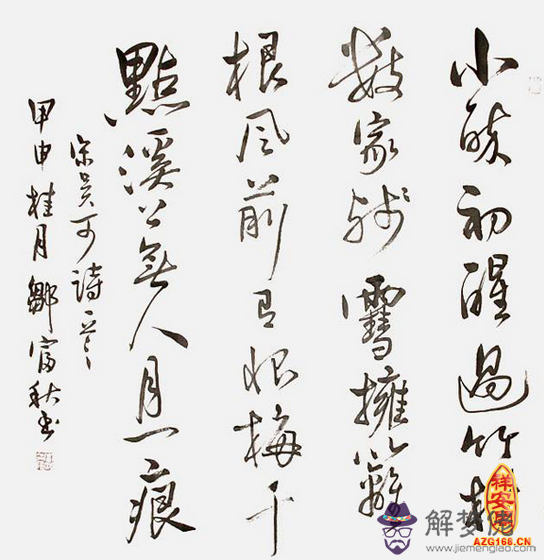 小醉初醒過竹村
數家殘雪擁籬
根風前有恨梅千
點溪上無人月一痕
宋吳可詩一首
甲申桂月鄒富秋書
祥安阁
AZG168.CN
解梦佬
www.jiemenglao.com